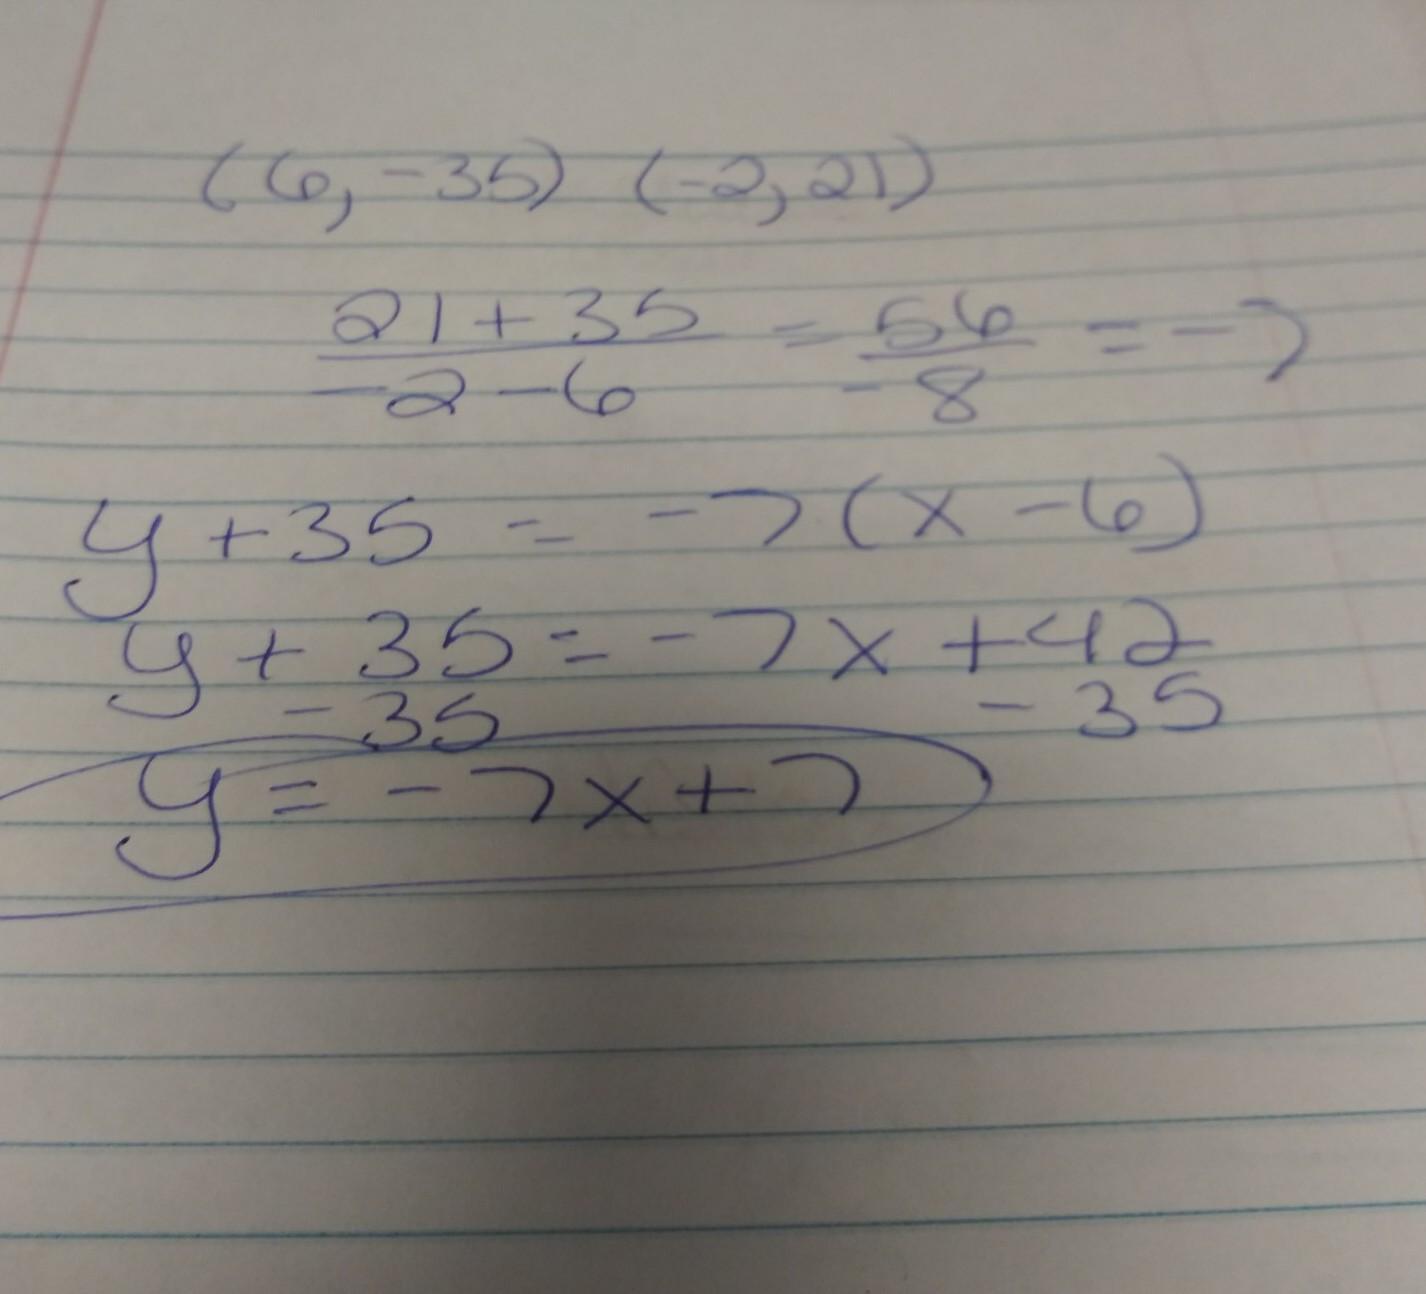 (6, -35) (-2, 21)
21 + 35 / -2 - 6 = 56 / -8 = -7
y + 35 = -7(x - 6)
y + 35 = -7x + 42
- 35 - 35
y = -7x + 7